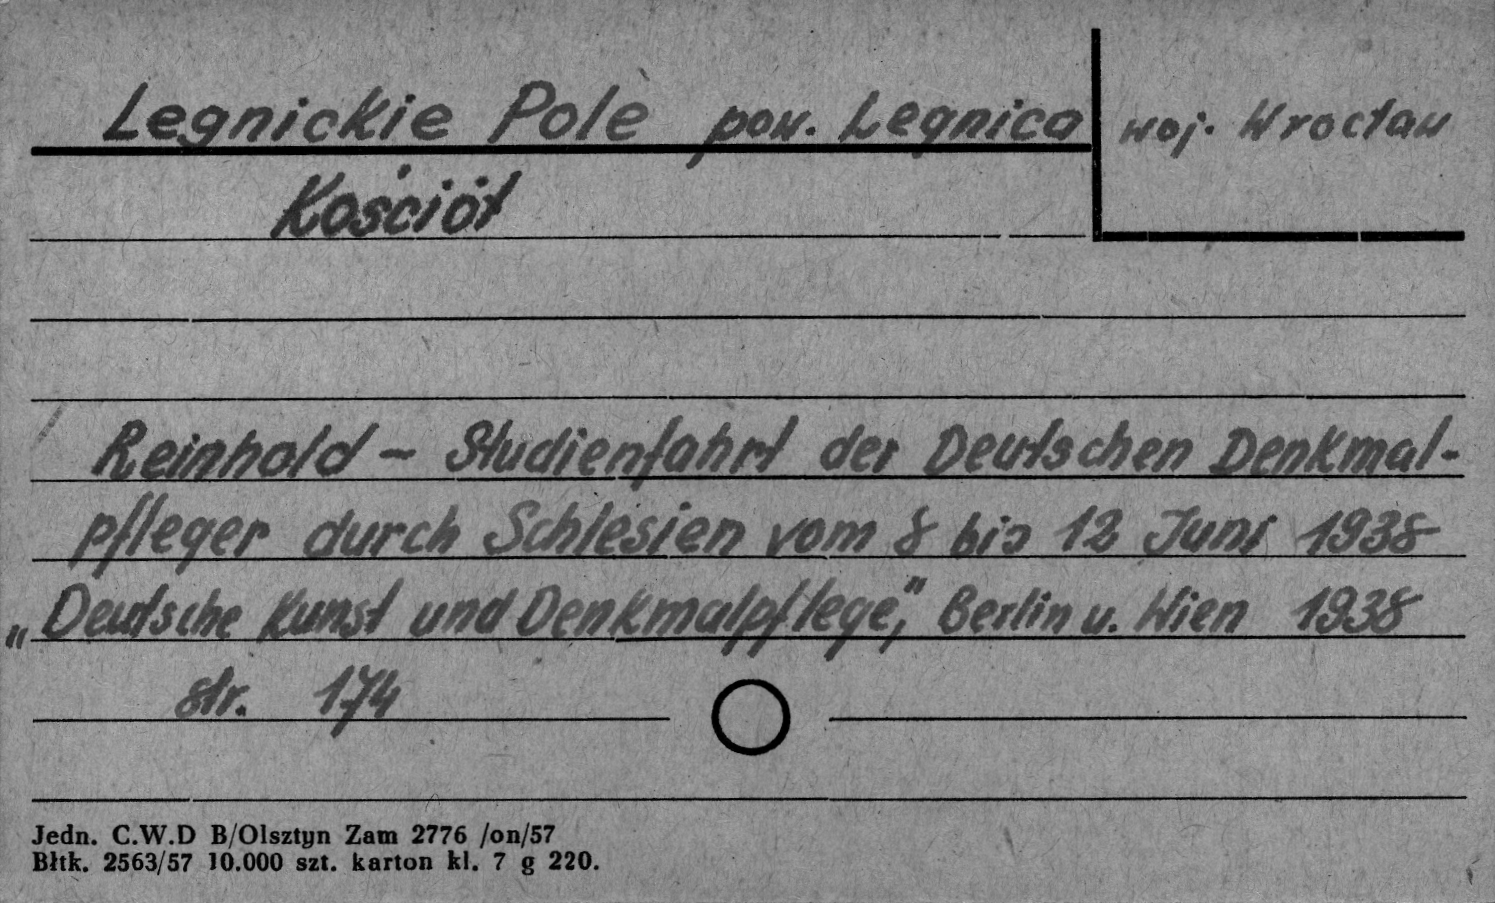 Legnickie Pole pow. Legnica woj. Wrocław
Kościół
Reinhold - Studienfahrt der Deutschen Denkmal-
pfleger durch Schlesien vom 8 bis 12 Juni 1938
„Deutsche Kunst und Denkmalpflege," Berlin u. Wien 1938
str. 174
Jedn. C.W.D B/Olsztyn Zam 2776 /on/57
Błtk. 2563/57 10.000 szt. karton kl. 7 g 220.